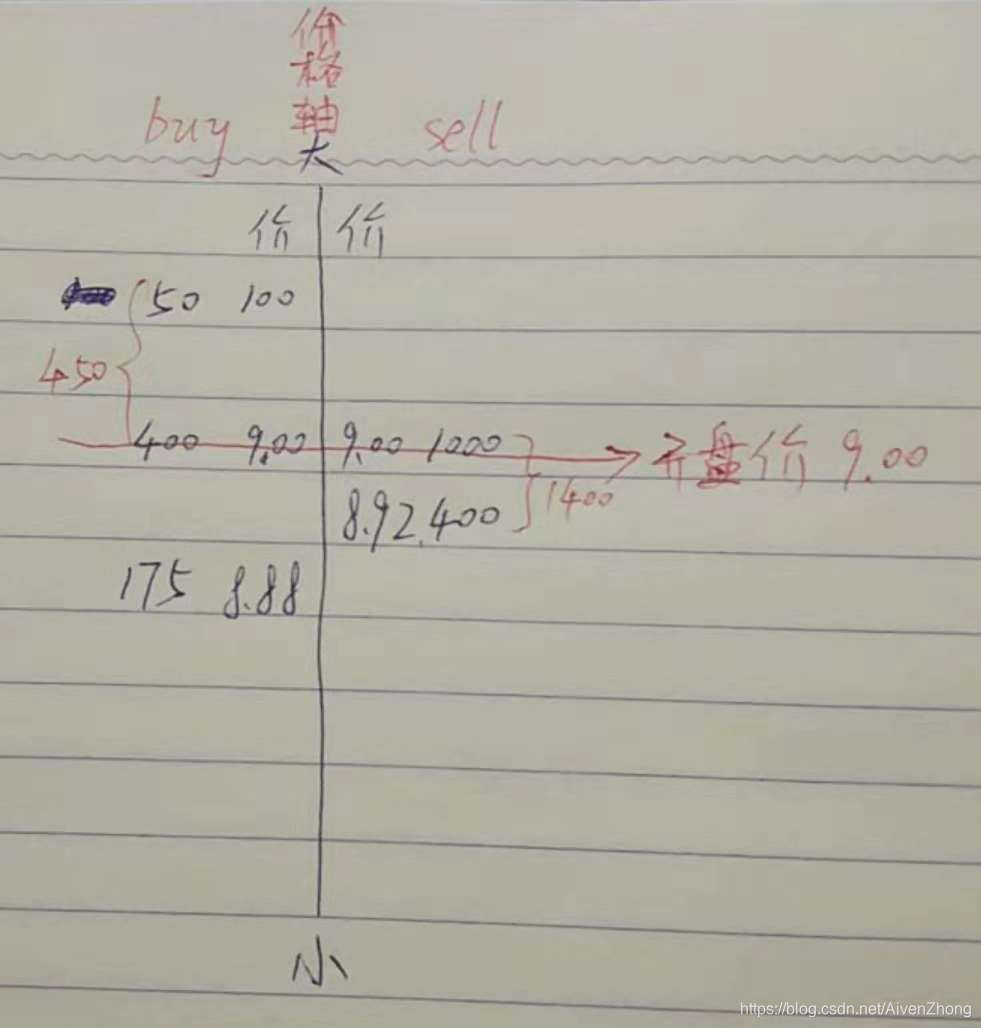 价格轴
buy sell
大
价 价
50 100
450
400 9.00 9.00 1000 开盘价 9.00
8.92 400 1400
175 8.88
小
https://blog.csdn.net/AivenZhong